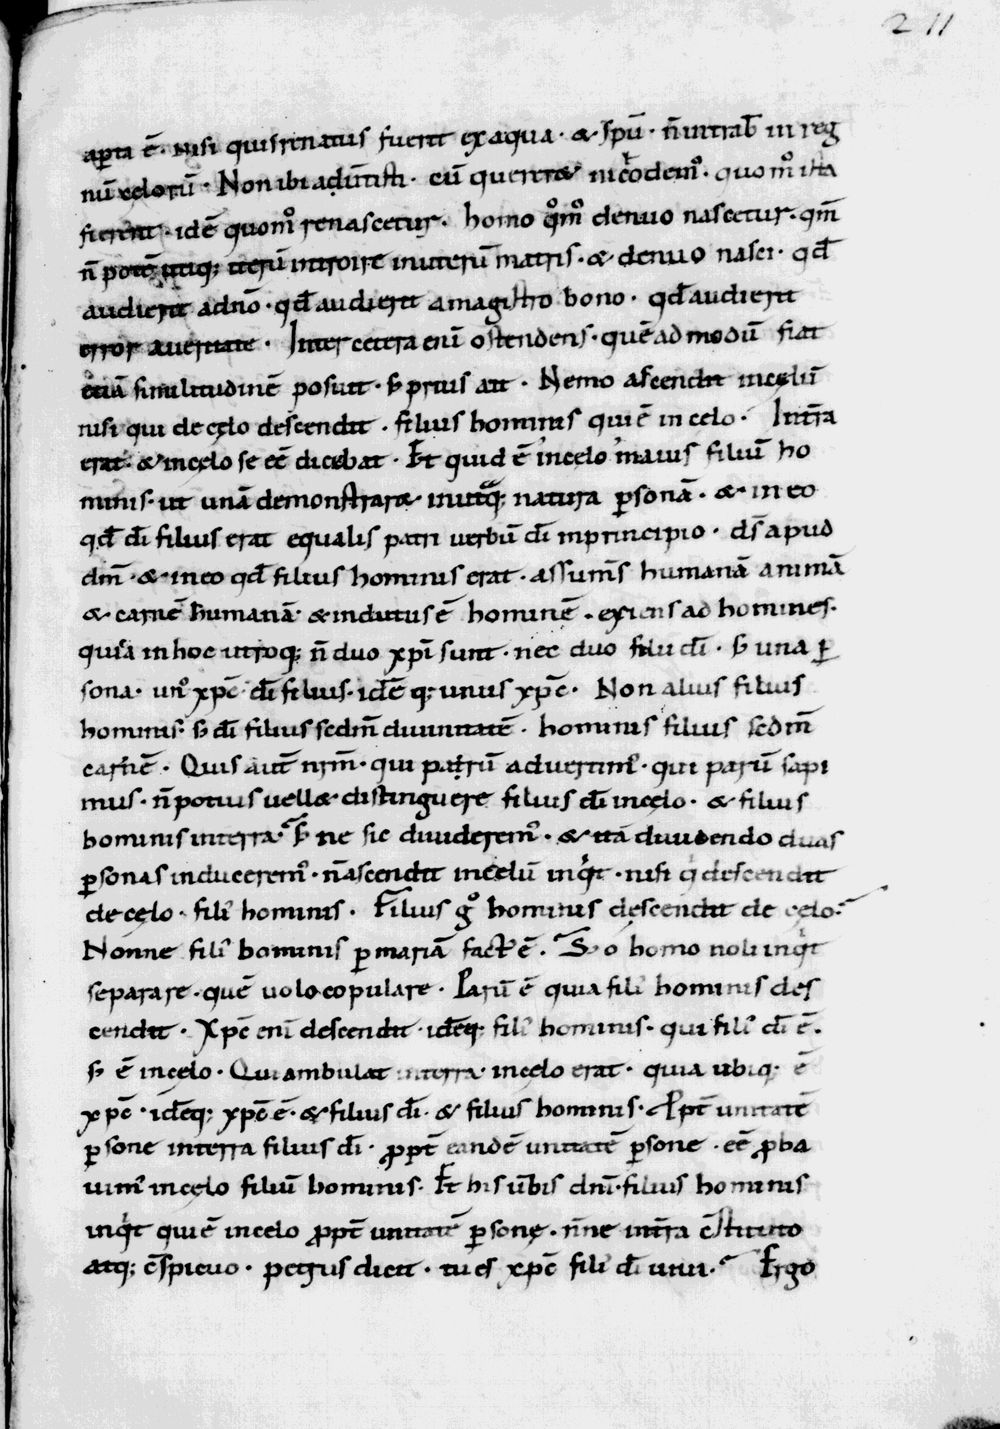 211
aꝑta ē· nisi quis renatus fuerit ex aqua · & · spū · n̄ intrab̄ in reg
nū celorū · Non ibi aduīristi · cū quereret nicodem᷒ · quom̊ ista
fierent · idē quom̊ renascetur · homo q̊m̊ denuo nascetur · qm̄
n̄ potē utiq; iterū introire in uterū matris · & · denuo nasci · qđ
audierit a dn̄o · qđ audierit a magistro bono · qđ audierit
error aueritate · Inter cetera enī ostendens · quēadmodū fiat
etiā similitudinē posuit · s; prius ait · Nemo ascendit in cęlū
nisi qui de cęlo descendit · filius hominis qui ē in celo · In tr̄ra
erat · & in cęlo se eē dicebat · Et quid ē in cęlo maius filiū ho
minis · ut unā demonstraret in utraq; natura ꝑsonā · & · in eo
qđ dī filius erat equalis patri uerbū dī in principio · ds̄ apud
dm̄ · & · in eo qđ filius hominis erat · assumēs humanā animā
& · carnē humanā · & indutus ē hominē · exiens ad homines ·
quia in hoc utroq; n̄ duo xp̄i sunt · nec duo filii dī · s; una ꝑ
sona · un᷒ xp̄c · dī filius · idē q; unus xp̄c · Non alius filius
hominis · s; dī filius sedm̄ diuinitatē · hominis filius sedm̄
carnē · Quis aut̄ nr̄m · qui parū aduertim᷒ · qui parū sapi
mus · n̄ potius uellet distinguere filius dī in cęlo · & filius
hominis in terra · S; ne sic diuiderem᷒ · & ita diuidendo duas
ꝑsonas induceremꝰ · n̄ ascendit in cęlū inqͥt · nisi qͥ descendit
de cęlo · fili᷒ hominis · Filius gͦ hominis descendit de cęlo ·
Nonne fili᷒ hominis ꝑ mariā fact᷒ ē · S; o homo noli inqͥt
separare · quē uolo copulare · Parū ē quia fili᷒ hominis des
cendit · Xp̄c enī descendit · idēq; fili᷒ hominis · qui fili᷒ dī ē ·
s; ē in cęlo · Qui ambulat in terra · in cęlo erat · quia ubiq; ē
xp̄c · idēq; xp̄c ē · & filius dī · & filius hominis · Ꝓpt̄ unitatē
ꝑsone in terra filius dī · ꝓpt̄ eandē unitatē ꝑsone · eē ꝓba
uim᷒ in cęlo filiū hominis · Et his ub̄is dn̄i · filius hominis
inqͥt qui ē in celo ꝓpt̄ unitatē ꝑsonę · n̄ne in tr̄ra c̄stituto
atq; c̄spicuo · petrus dicit · tu es xp̄c fili᷒ dī uiui · Ergo